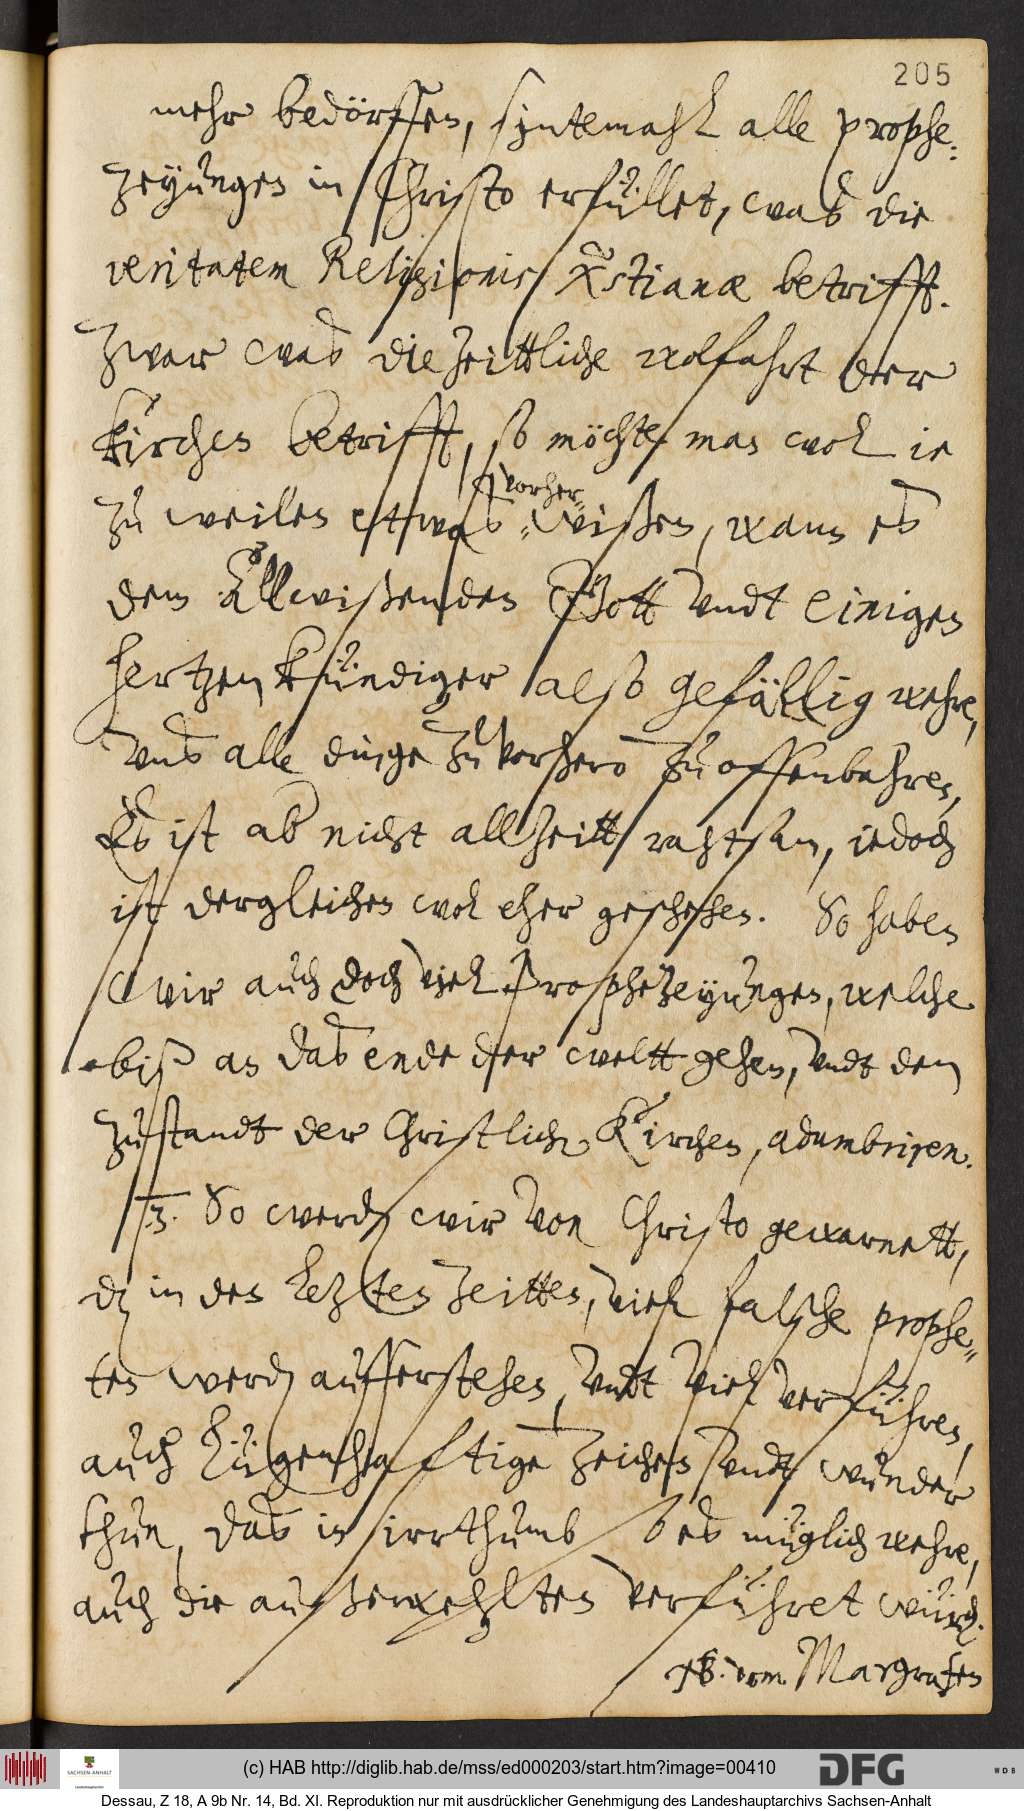 205
mehr bedörffen, sintemahl alle prophe-
zeyungen in Christo erfüllet, was die
veritatem Religionis Xstianæ betrifft.
Zwar was die zeittliche wolfahrt der
Kirchen betrifft, so möchte man wol ie
zu weilen etwas vorher-
wißen, wann es
dem Allwißenden Gott undt einigen
hertzenkündiger also gefällig wehre,
uns alle dinge zu vorhero zu offenbahren,
Es ist ab nicht allzeitt rahtsam, iedoch
ist dergleichen wol eher geschehen. So haben
wir auch doch viel Prophezeyungen, welche
biß an das ende der weltt gehen, undt den
zustandt der Christlichen Kirchen, adumbriren.
3. So werden wir von Christo gewarnett,
dz in den letzten zeitten, viel falsche prophe-
ten werden aufferstehen, undt viel verführen,
auch lügenhaftige zeichen undt wunder
thun, das in irrthumb so es müglich wehre,
auch die außerwehlten verführet würden.
vom Margrafen
(c) HAB http://diglib.hab.de/mss/ed000203/start.htm?image=00410
SACHSEN-ANHALT
DFG
WDB
Dessau, Z 18, A 9b Nr. 14, Bd. XI. Reproduktion nur mit ausdrücklicher Genehmigung des Landeshauptarchivs Sachsen-Anhalt